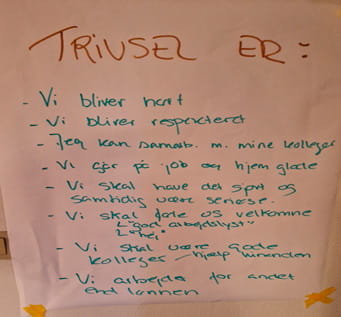 TRIVSEL ER:
- Vi bliver hørt
- Vi bliver respekteret
- Jeg kan samarb. m. mine kolleger
- Vi går på job og hjem glade
- Vi skal have det sjovt og
samtidig være seriøse.
- Vi skal føle os velkomne
↳ "god arbejdslyst"
↳ "hej"
- Vi skal være gode
kolleger – hjælp hinanden
- Vi arbejder for andet
end lønnen